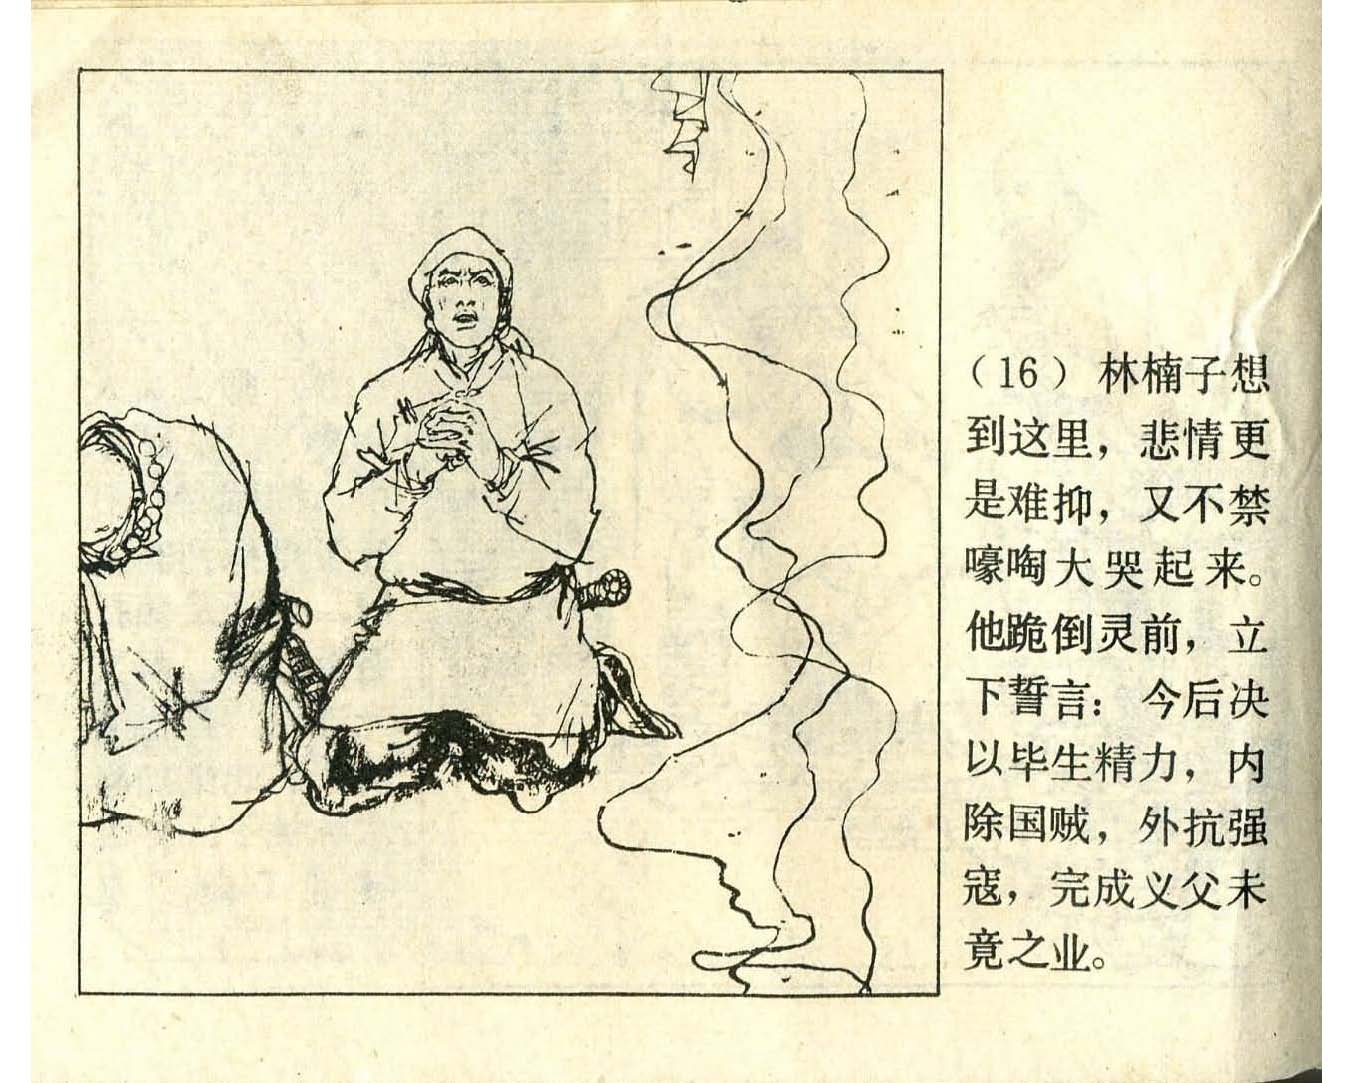 （16）林楠子想
到这里，悲情更
是难抑，又不禁
嚎啕大哭起来。
他跪倒灵前，立
下誓言：今后决
以毕生精力，内
除国贼，外抗强
寇，完成义父未
竟之业。